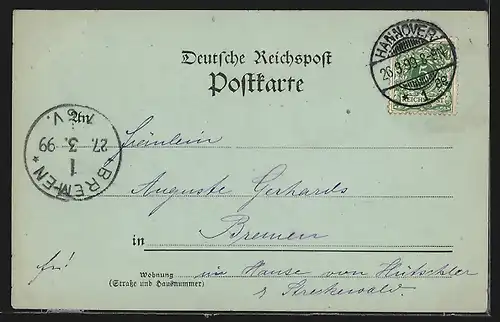 Deutsche Reichspost
Postkarte
HANNOVER
26.3.99.8-9N.
* 1 *
REICHSPOST
BREMEN
1
27. 3. 99
V.
Fräulein
Auguste Gerhards
in Bremen
frei!
Wohnung
(Straße und Hausnummer)
im Hause von